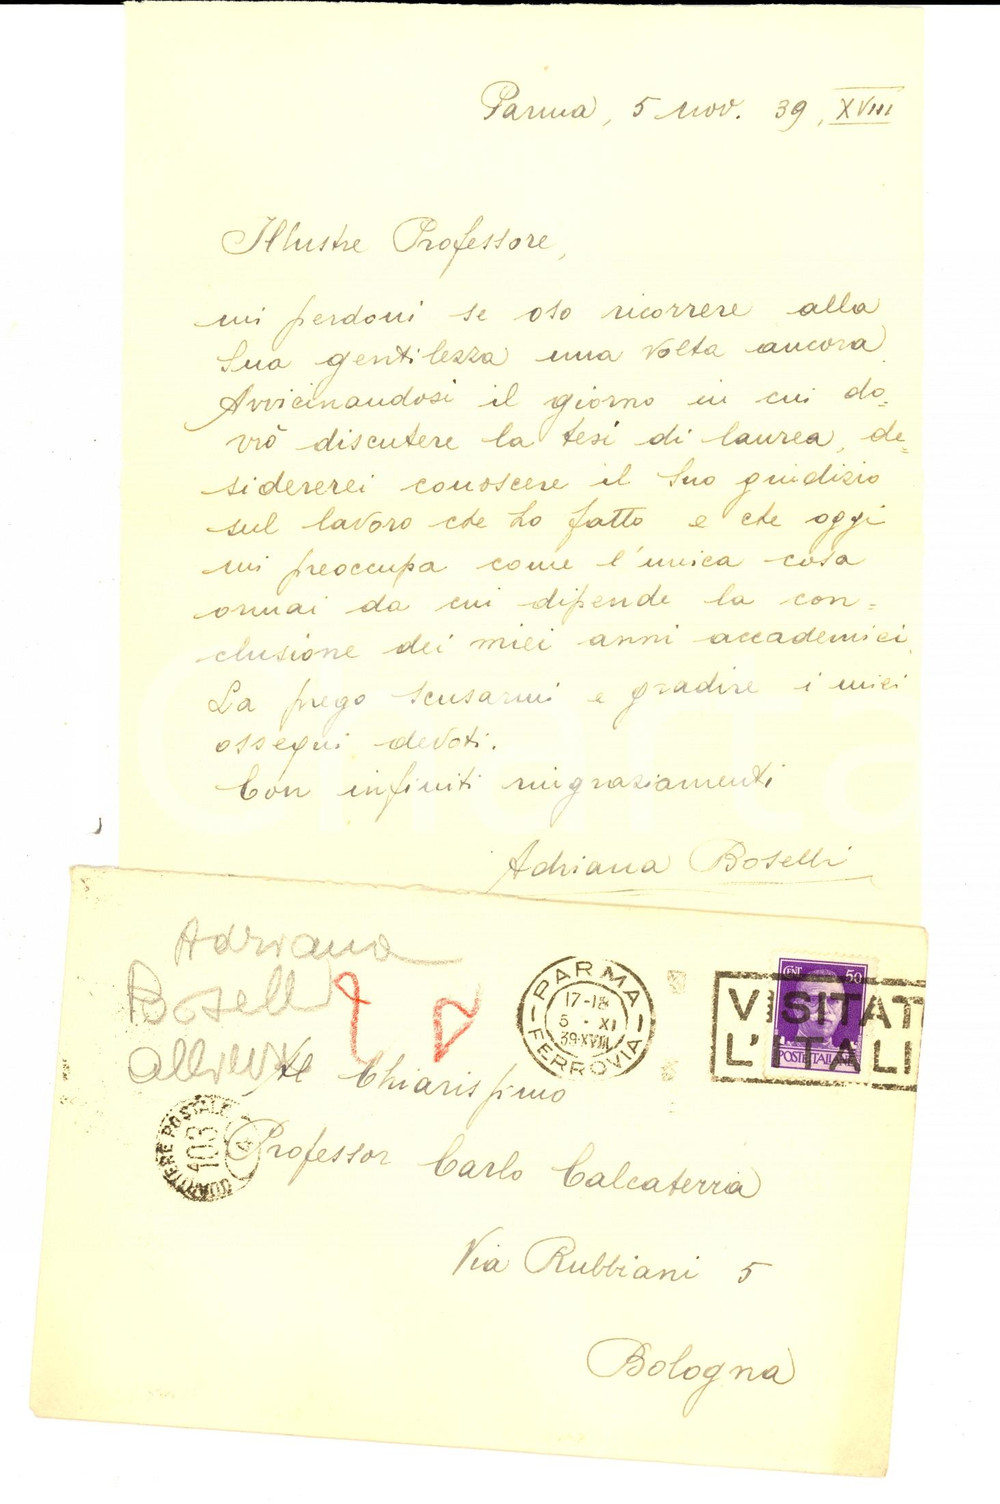 Parma, 5 nov. 39, XVIII
Illustre Professore,
mi perdoni se oso ricorrere alla
Sua gentilezza una volta ancora.
Avvicinandosi il giorno in cui do=
vrò discutere la tesi di laurea, de=
sidererei conoscere il Suo giudizio
sul lavoro che ho fatto e che oggi
mi preoccupa come l'unica cosa
ormai da cui dipende la con=
clusione dei miei anni accademici.
La prego scusarmi e gradire i miei
ossequi devoti.
Con infiniti ringraziamenti
Adriana Boselli
Adriana
Boselli
allieva
PARMA
17-18
5 - XI
39·XVIII
FERROVIA
VISITATE
L'ITALI
CENT. 50
POSTE ITALIANE
Al Chiarissimo
Professor Carlo Calcaterra
Via Rubbiani 5
Bologna
PORTALETTERE
103
Charta